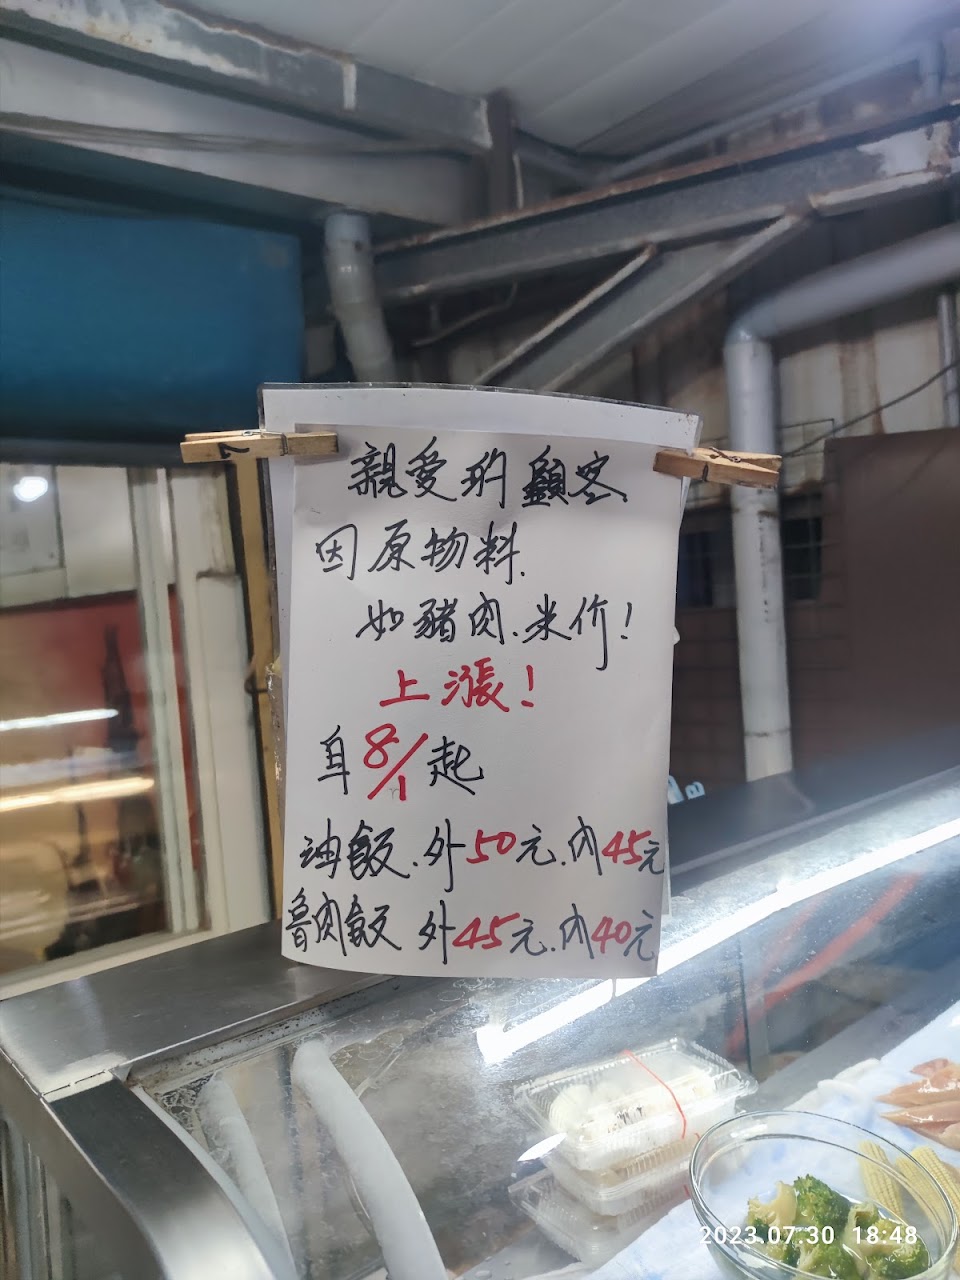 親愛的顧客
因原物料.
如豬肉.米价!
上漲!
自8/1起
油飯.外50元.內45元
魯肉飯 外45元.內40元
2023.07.30 18:48